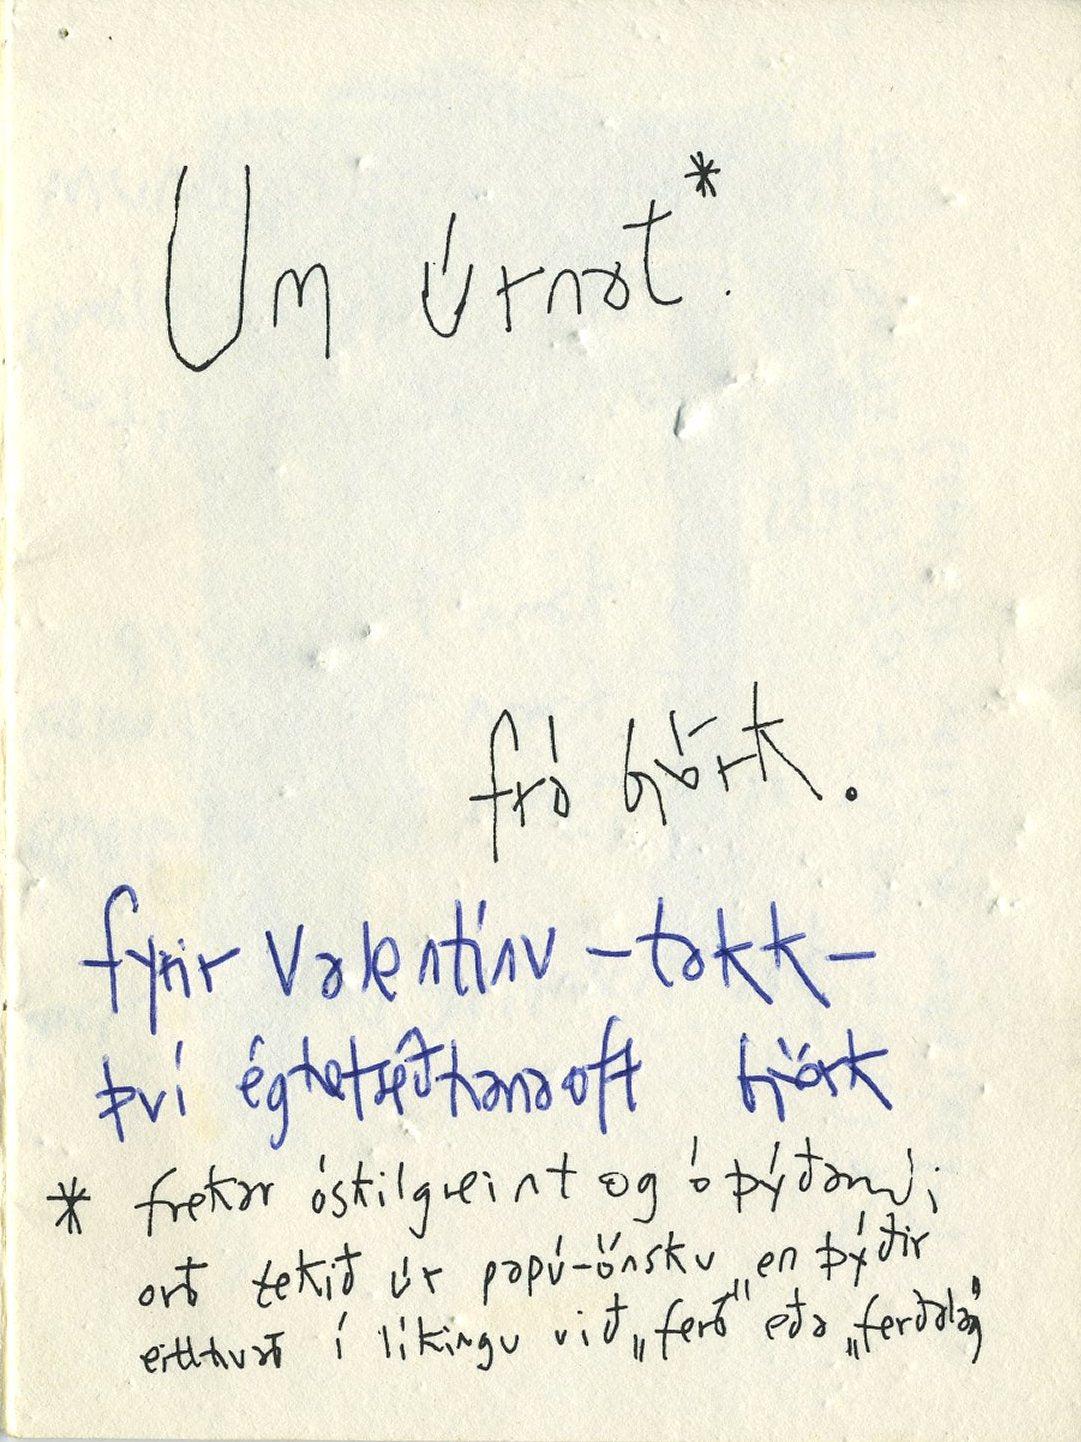 Um Úrnat*.
frá björk.
fyrir Valentínu – takk –
því ég hana oft björk
* frekar óskilgreint og óþýðandi
orð tekið úr papú-önsku en þýðir
eitthvað í líkingu við „ferð“ eða „ferðalag“